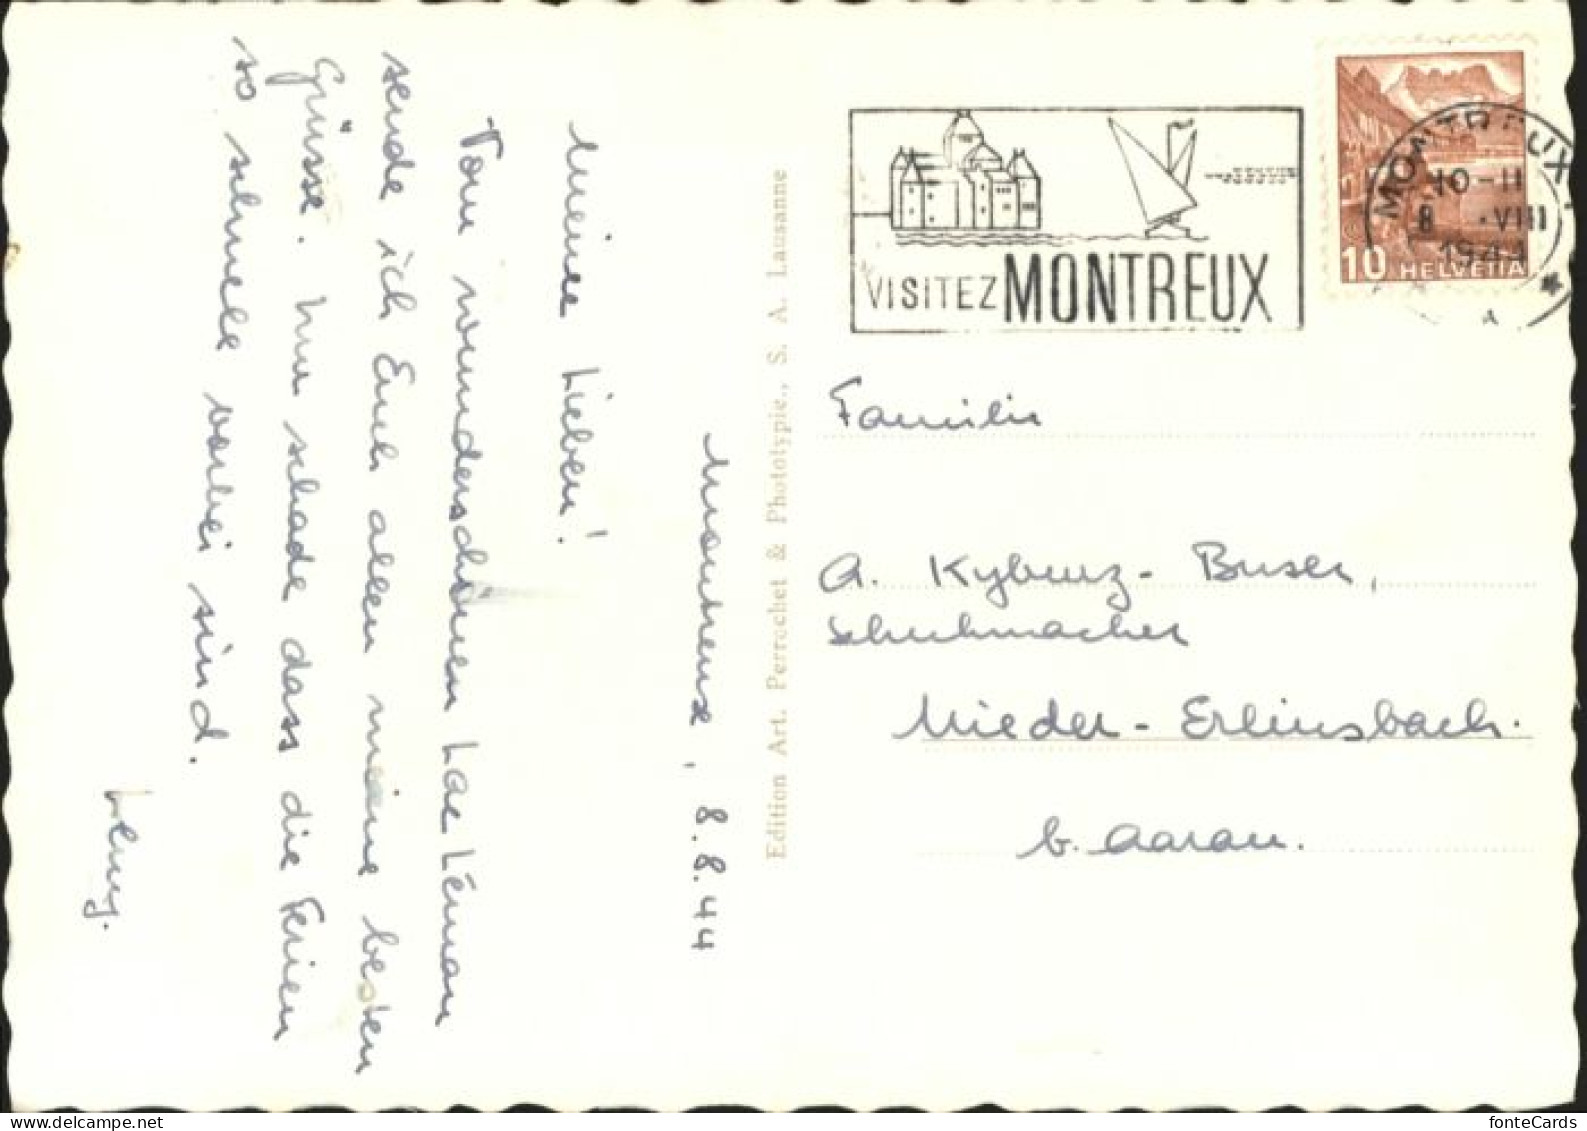 Montreux, 8.8.44
Meine Lieben!
Vom wunderschönen Lac Léman
sende ich Euch allen meine besten
Grüsse. Nur schade dass die Ferien
so schnell vorbei sind.
Leny.
Edition Art. Perrochet & Phototypie., S. A. Lausanne
VISITEZ MONTREUX
MONTREUX
10-11
8 .VIII
1944
10 HELVETIA
Familie
A. Kyburz-Buser,
Schuhmacher
Nieder-Erlinsbach.
b. Aarau.
fonteCards